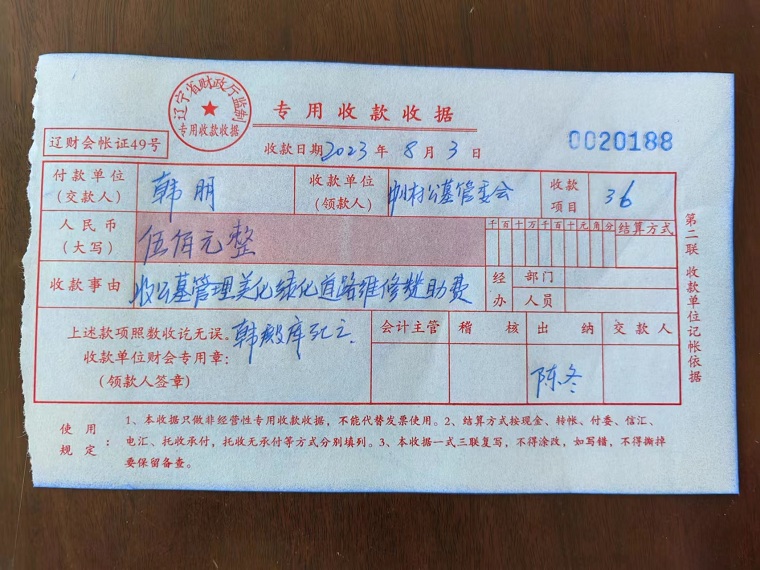 辽宁省财政厅监制
专用收款收据
专用收款收据
辽财会帐证49号
收款日期 2023 年 8 月 3 日
0020188
付款单位
(交款人)
韩明
收款单位
(领款人)
村公墓管委会
收款
项目
36
人民币
(大写)
伍佰元整
千百十万千百十元角分
结算方式
收款事由
收公墓管理美化绿化道路维修赞助费
经办
部门
人员
上述款项照数收讫无误。
收款单位财会专用章:
(领款人签章)
韩殿库
会计主管
稽核
出纳
交款人
陈冬
第二联 收款单位记帐依据
使用规定:
1、本收据只做非经营性专用收款收据,不能代替发票使用。2、结算方式按现金、转帐、付委、信汇、
电汇、托收承付,托收无承付等方式分别填列。3、本收据一式三联复写,不得涂改,如写错,不得撕掉
要保留备查。